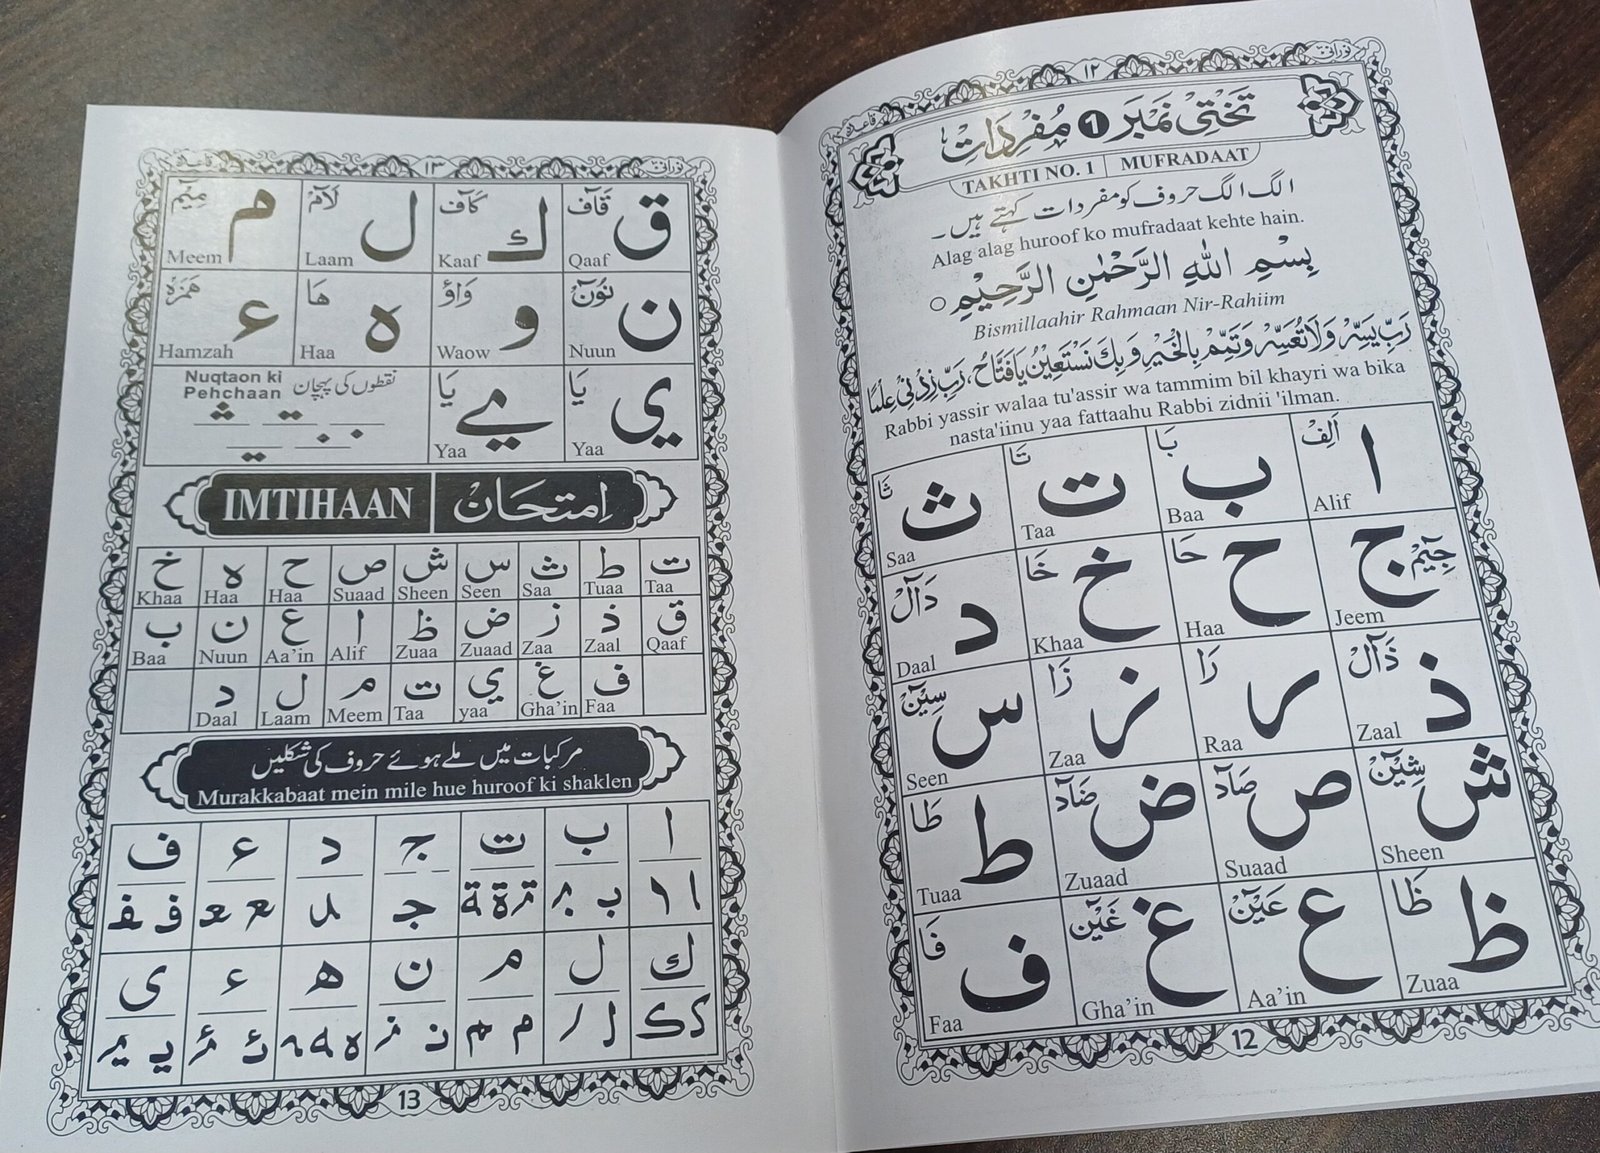 نورانی ۱۲ قاعدہ
تَخْتِیْ نَمْبَر 1 مُفْرَدَاتْ
TAKHTI NO. 1 | MUFRADAAT
الگ الگ حروف کو مفردات کہتے ہیں۔
Alag alag huroof ko mufradaat kehte hain.
بِسْمِ اللهِ الرَّحْمٰنِ الرَّحِيْمِ ○
Bismillaahir Rahmaan Nir-Rahiim
رَبِّ يَسِّرْ وَلَا تُعَسِّرْ وَتَمِّمْ بِالْخَيْرِ وَبِكَ نَسْتَعِيْنُ يَا فَتَّاحُ، رَبِّ زِدْنِيْ عِلْمًا
Rabbi yassir walaa tu'assir wa tammim bil khayri wa bika
nasta'iinu yaa fattaahu Rabbi zidnii 'ilman.
اَلِفْ ا بَا ب تَا ت ثَا ث
Alif Baa Taa Saa
جِيْمْ ج حَا ح خَا خ دَالْ د
Jeem Haa Khaa Daal
ذَالْ ذ رَا ر زَا ز سِيْنْ س
Zaal Raa Zaa Seen
شِيْنْ ش صَادْ ص ضَادْ ض طَا ط
Sheen Suaad Zuaad Tuaa
ظَا ظ عَيْنْ ع غَيْنْ غ فَا ف
Zuaa Aa'in Gha'in Faa
12
نورانی ۱۳ قاعدہ
قَافْ ق كَافْ ك لَامْ ل مِيْمْ م
Qaaf Kaaf Laam Meem
نُوْنْ ن وَاوْ و هَا ه هَمْزَهْ ء
Nuun Waow Haa Hamzah
يَا ي يَا ے نقطوں کی پہچان Nuqtaon ki
Pehchaan
Yaa Yaa
IMTIHAAN | اِمتحَانْ
ت ط ث س ش ص ح ه خ
Taa Tuaa Saa Seen Sheen Suaad Haa Haa Khaa
ق ذ ز ض ظ ا ع ن ب
Qaaf Zaal Zaa Zuaad Zuaa Alif Aa'in Nuun Baa
ف غ ي ت م ل د
Faa Gha'in yaa Taa Meem Laam Daal
مرکبات میں ملے ہوئے حروف کی شکلیں
Murakkabaat mein mile hue huroof ki shaklen
ا ب ت ج د ء ف
ك ل م ن ه ء ی
13